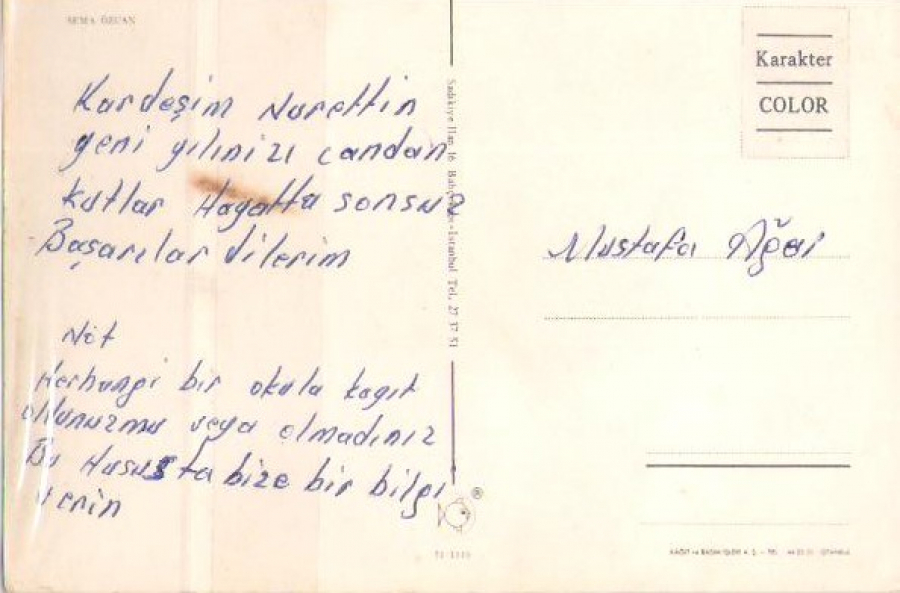 SEMA ÖZCAN
Kardeşim Nurettin
yeni yılınızı candan
kutlar Hayatta sonsuz
Başarılar dilerim
Not
Herhangi bir okula kayıt
oldunuzmu veya olmadınız
Bu Hususta bize bir bilgi
verin
Sadıkiye Han 16 İstanbul Tel. 27 37 51
®
Karakter
COLOR
Mustafa